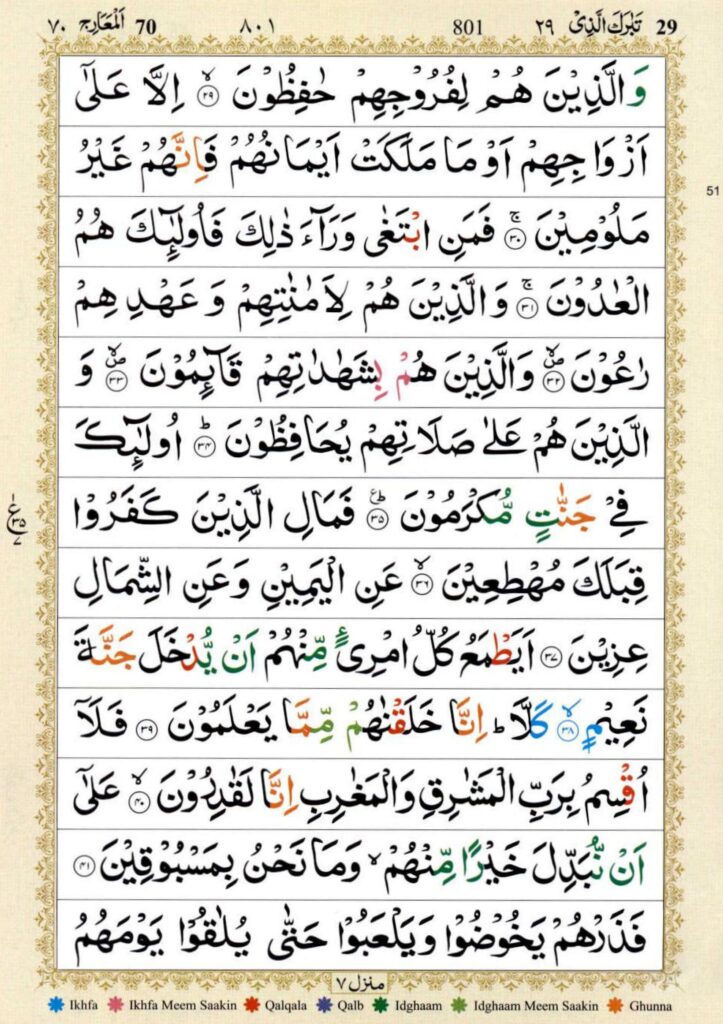 29 تَبٰرَكَ الَّذِیْ ٢٩ 801 ٨٠١ 70 اَلْمَعَارِج ٧٠
وَالَّذِیْنَ هُمْ لِفُرُوْجِهِمْ حٰفِظُوْنَ ۙ﴿٢٩﴾ اِلَّا عَلٰۤی
اَزْوَاجِهِمْ اَوْ مَا مَلَكَتْ اَیْمَانُهُمْ فَاِنَّهُمْ غَیْرُ
مَلُوْمِیْنَ ۚ﴿٣٠﴾ فَمَنِ ابْتَغٰی وَرَآءَ ذٰلِكَ فَاُولٰٓئِكَ هُمُ
51
الْعٰدُوْنَ ۚ﴿٣١﴾ وَالَّذِیْنَ هُمْ لِاَمٰنٰتِهِمْ وَعَهْدِهِمْ
رٰعُوْنَ ۪ۙ﴿٣٢﴾ وَالَّذِیْنَ هُمْ بِشَهٰدٰتِهِمْ قَآئِمُوْنَ ۪ۙ﴿٣٣﴾ وَ
الَّذِیْنَ هُمْ عَلٰی صَلَاتِهِمْ یُحَافِظُوْنَ ؕ﴿٣٤﴾ اُولٰٓئِكَ
فِیْ جَنّٰتٍ مُّكْرَمُوْنَ ؕ﴿٣٥﴾ فَمَالِ الَّذِیْنَ كَفَرُوْا
ع ٣٥ ٧
قِبَلَكَ مُهْطِعِیْنَ ۙ﴿٣٦﴾ عَنِ الْیَمِیْنِ وَعَنِ الشِّمَالِ
عِزِیْنَ ﴿٣٧﴾ اَیَطْمَعُ كُلُّ امْرِئٍ مِّنْهُمْ اَنْ یُّدْخَلَ جَنَّةَ
نَعِیْمٍ ۙ﴿٣٨﴾ كَلَّا ؕ اِنَّا خَلَقْنٰهُمْ مِّمَّا یَعْلَمُوْنَ ﴿٣٩﴾ فَلَاۤ
اُقْسِمُ بِرَبِّ الْمَشٰرِقِ وَالْمَغٰرِبِ اِنَّا لَقٰدِرُوْنَ ۙ﴿٤٠﴾ عَلٰۤی
اَنْ نُّبَدِّلَ خَیْرًا مِّنْهُمْ ۙ وَمَا نَحْنُ بِمَسْبُوْقِیْنَ ﴿٤١﴾
فَذَرْهُمْ یَخُوْضُوْا وَیَلْعَبُوْا حَتّٰی یُلٰقُوْا یَوْمَهُمُ
منزل ٧
Ikhfa Ikhfa Meem Saakin Qalqala Qalb Idghaam Idghaam Meem Saakin Ghunna